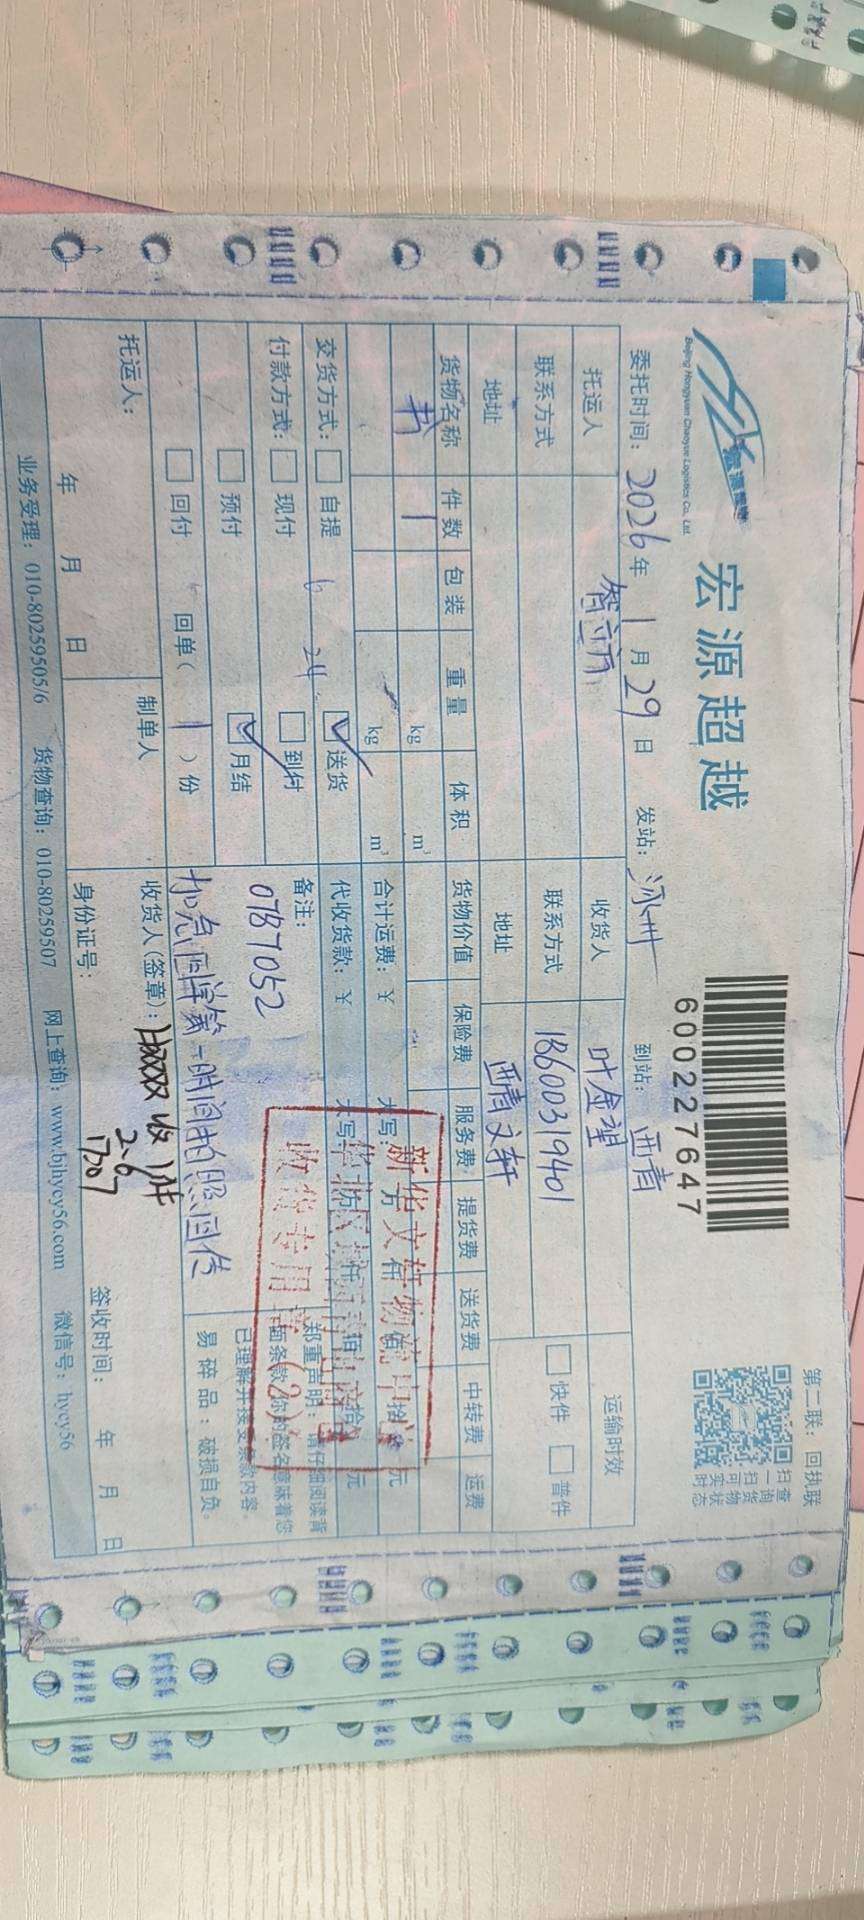 宏源超越
Beijing Hongyuan Chaoyue Logistics Co., Ltd.
600227647
第二联：回执联
扫一扫可实时
查询货物状态
委托时间：2026年1月29日 发站：涿州 到站：西青
托运人 智立方 收货人 叶金望 运输时效
联系方式 联系方式 18600319401 快件 普件
地址 地址 西青文轩
货物名称 件数 包装 重量 体积 货物价值 保险费 服务费 提货费 送货费 中转费 运费
书 1 kg m³
kg m³
合计运费：￥ 大写： 万 仟 佰 拾 元
交货方式： 自提 6 24 送货 代收货款：￥ 大写： 万 仟 佰 拾 元
付款方式： 现付 到付 备注：
预付 月结 0787052
回付 回单（ 1 ）份 加急回单第一时间拍照回传
郑重声明：请仔细阅读背
面条款，你的签名意味着您
已理解并接受条款内容。
易碎品：破损自负。
新华文轩物流中心
华北区
收货专用章(2)
托运人： 年 月 日
制单人
收货人(签章)： 收1件
2.6
身份证号： 签收时间： 年 月 日
业务受理：010-80259505/6 货物查询：010-80259507 网上查询：www.bjhycy56.com 微信号：hycy56